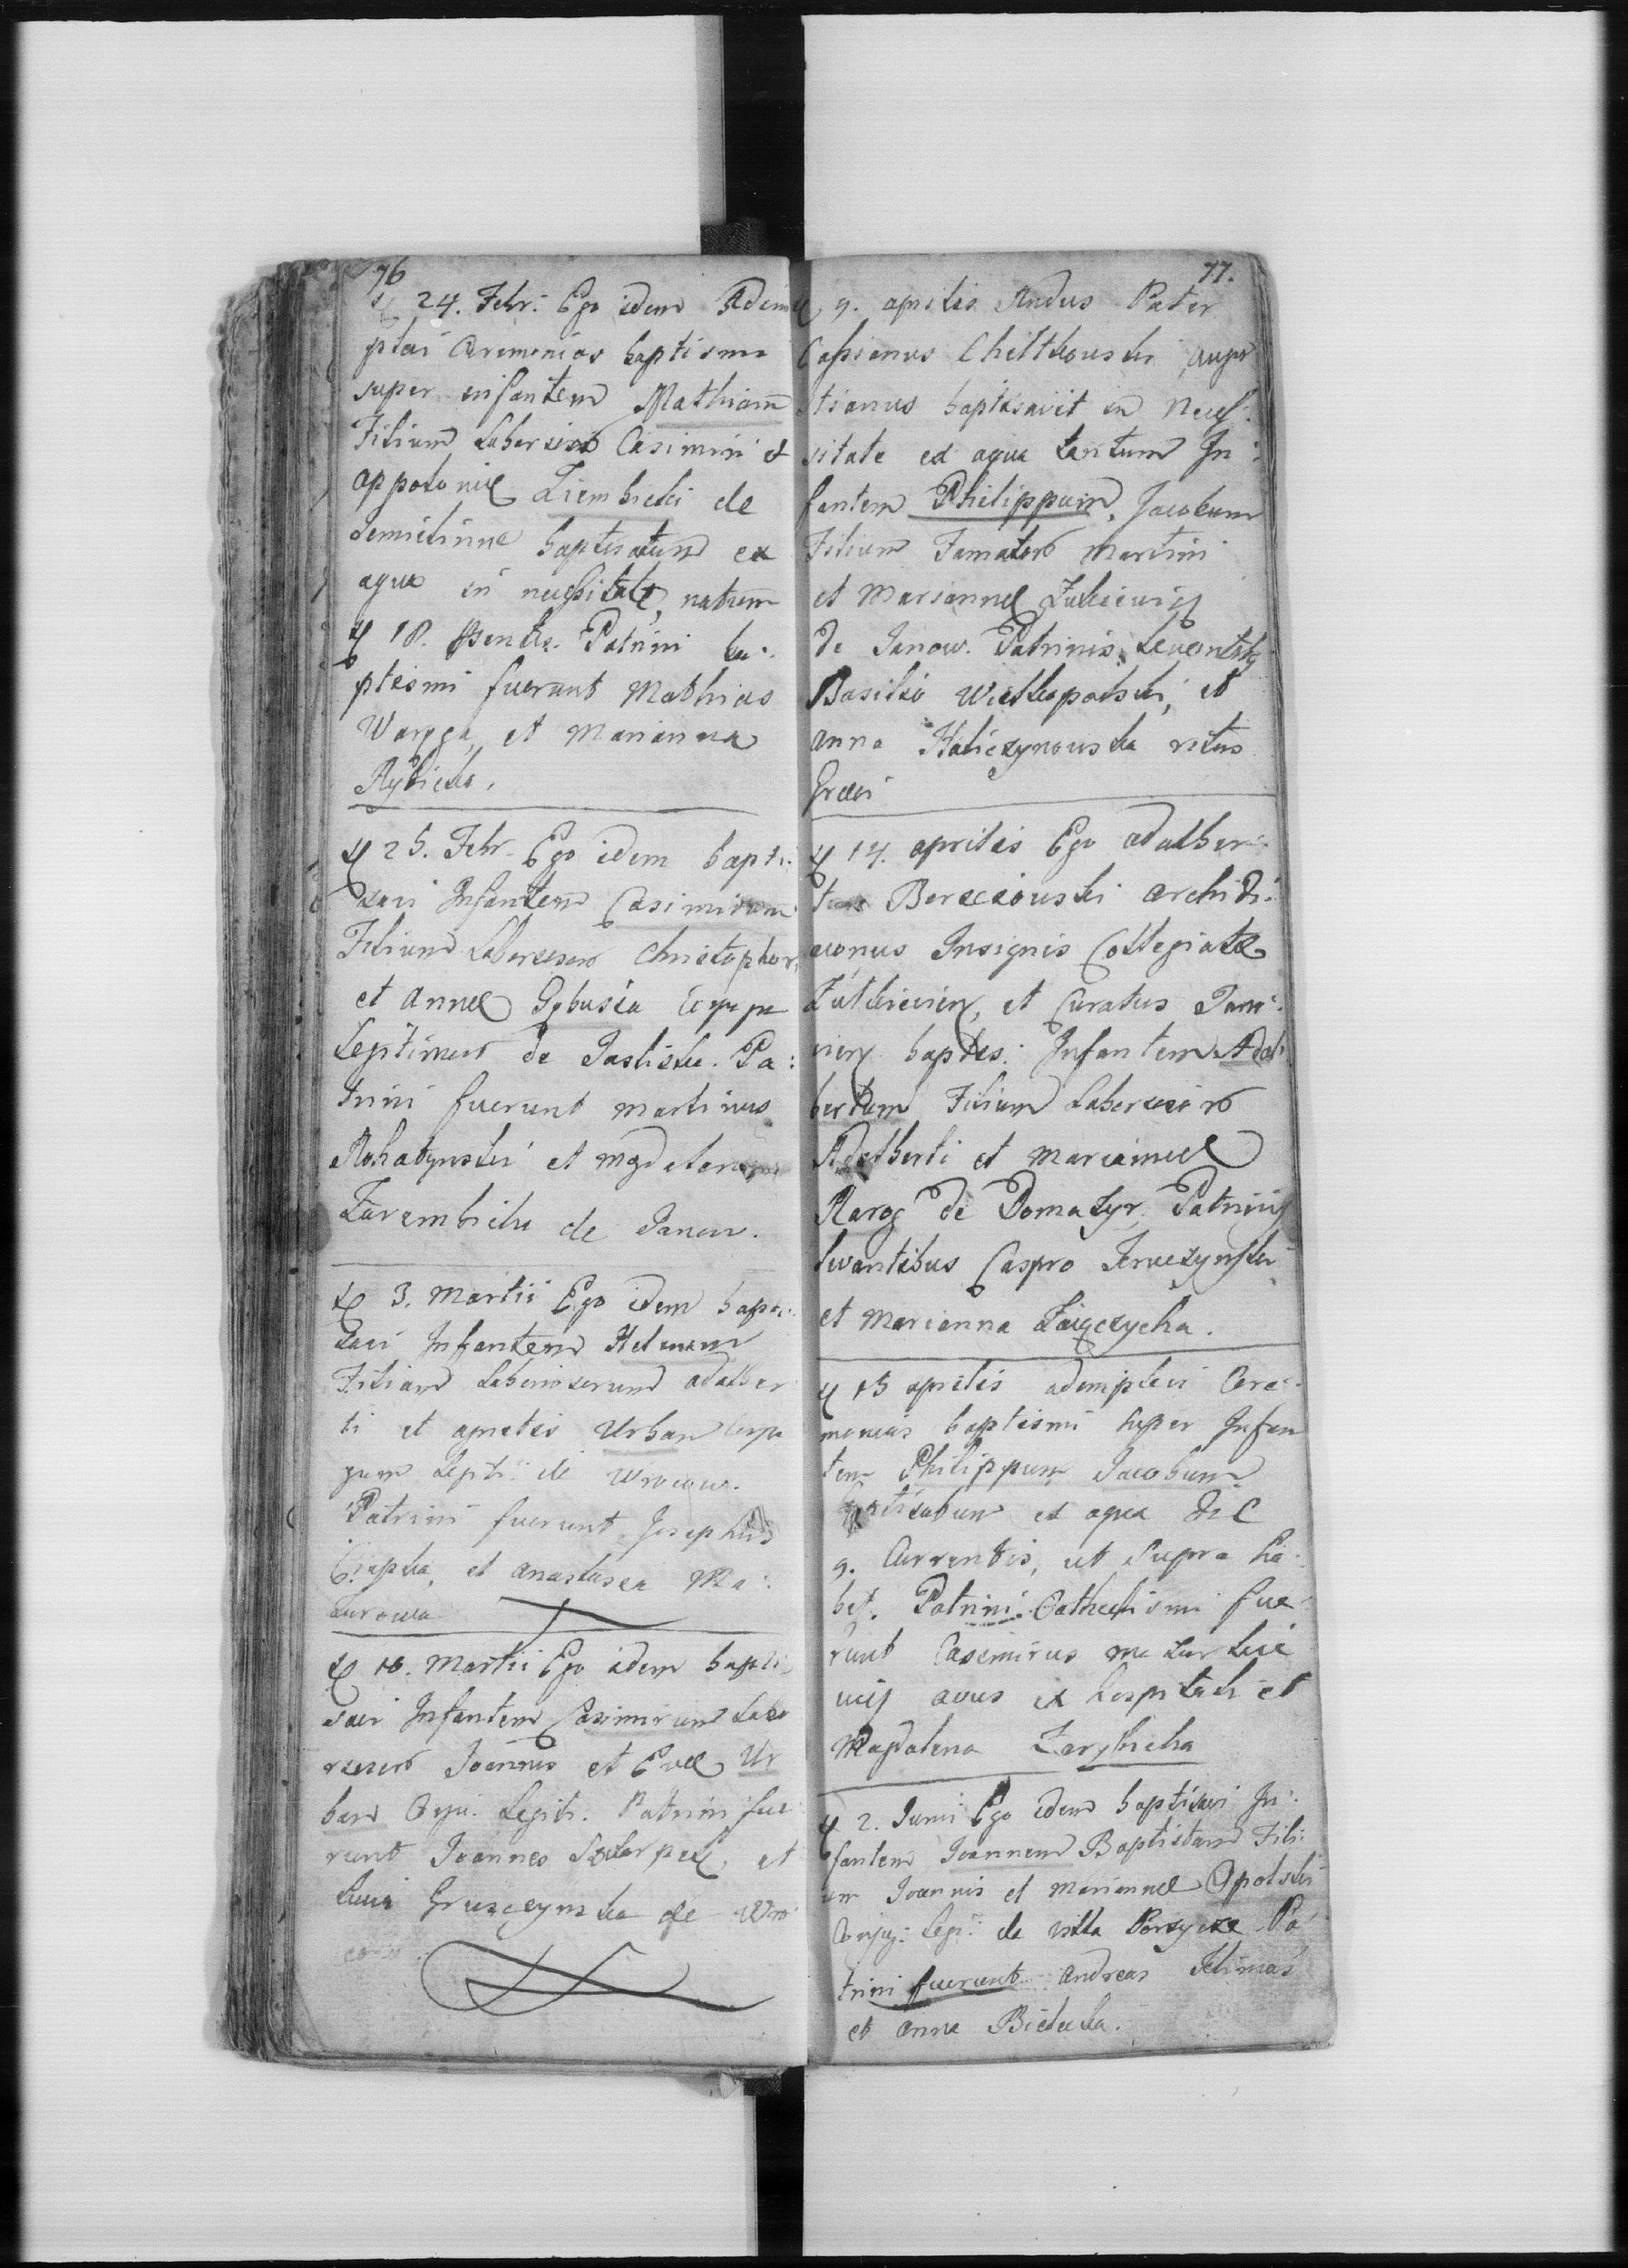 76
24. Febr: Ego idem Adim
plevi Ceremonias baptismi
super infantem Mathiam
Filium Laboriosor Casimiri et
Appoloniæ Ziembicki de
baptisatum ex
aqua in necessitate, natum
18. Patrini ba:
ptismi fuerunt Mathias
Warga, et Marianna
Rybicka.
25. Febr. Ego idem bapti:
savi Infantem Casimirum
Filium Laboriosor Christophori
et Annæ Gybusia
Legitimor de Jasliska. Pa:
trini fuerunt Martinus
Rohatynski et
Zarembicka de Janow.
3. Martii Ego idem bapti:
savi Infantem Helenam
Filiam Adalber
ti et Agnetis Urban Conju
gum Legit: de Wrocow.
Patrini fuerunt Josephus
et Anastasia Ma:
zurowa
18. Martii Ego idem bapti
savi Infantem Casimirum Labo
Joannis et Evæ Ur
ban Conju. Legit. Patrini fue
runt Joannes et
Lucia Gruszczynska de Wro
77.
9. Aprilis Andus Pater
Cassianus Chiltkowski Augu
stianus baptisavit in Necess:
sitate ex aqua tantum In:
fantem Philippum, Jacobum
Filium Famator Martini
et Mariannæ Zulkiewicz
de Janow. Patrinis Levantibg
Basilio Wielkopolski, et
Anna Haliczynouska ritus
Græci
14. Aprilis Ego Adalber:
tus Berezowski Archidi:
aconus Insignis Collegiatæ
Zulkievien, et Curatus Jano:
vien baptis: Infantem Adal
bertum Filium Laboriosor
Adalberti et Mariannæ
Rarog de Domazyr. Patrinis
levantibus Caspro
et Marianna Zaięczycha.
15 Aprilis adimplevi Cere:
monias baptismi super Infan
tem Philippum Jacobum
baptisatum ex aqua Die
9. Currentis, ut supra ha:
bet. Patrini Cathechismi fue
runt Casimirus Mazurkie
wicz avus ex hospitali et
Magdalena Zarybicka
2. Junii Ego idem baptisavi In:
fantem Joannem Baptistam Fili:
um Joannis et Mariannæ Opolski
Conjug: Legi: de villa Porzycze Pa
trini fuerunt Andreas Klimas
et Anna Bielecka.